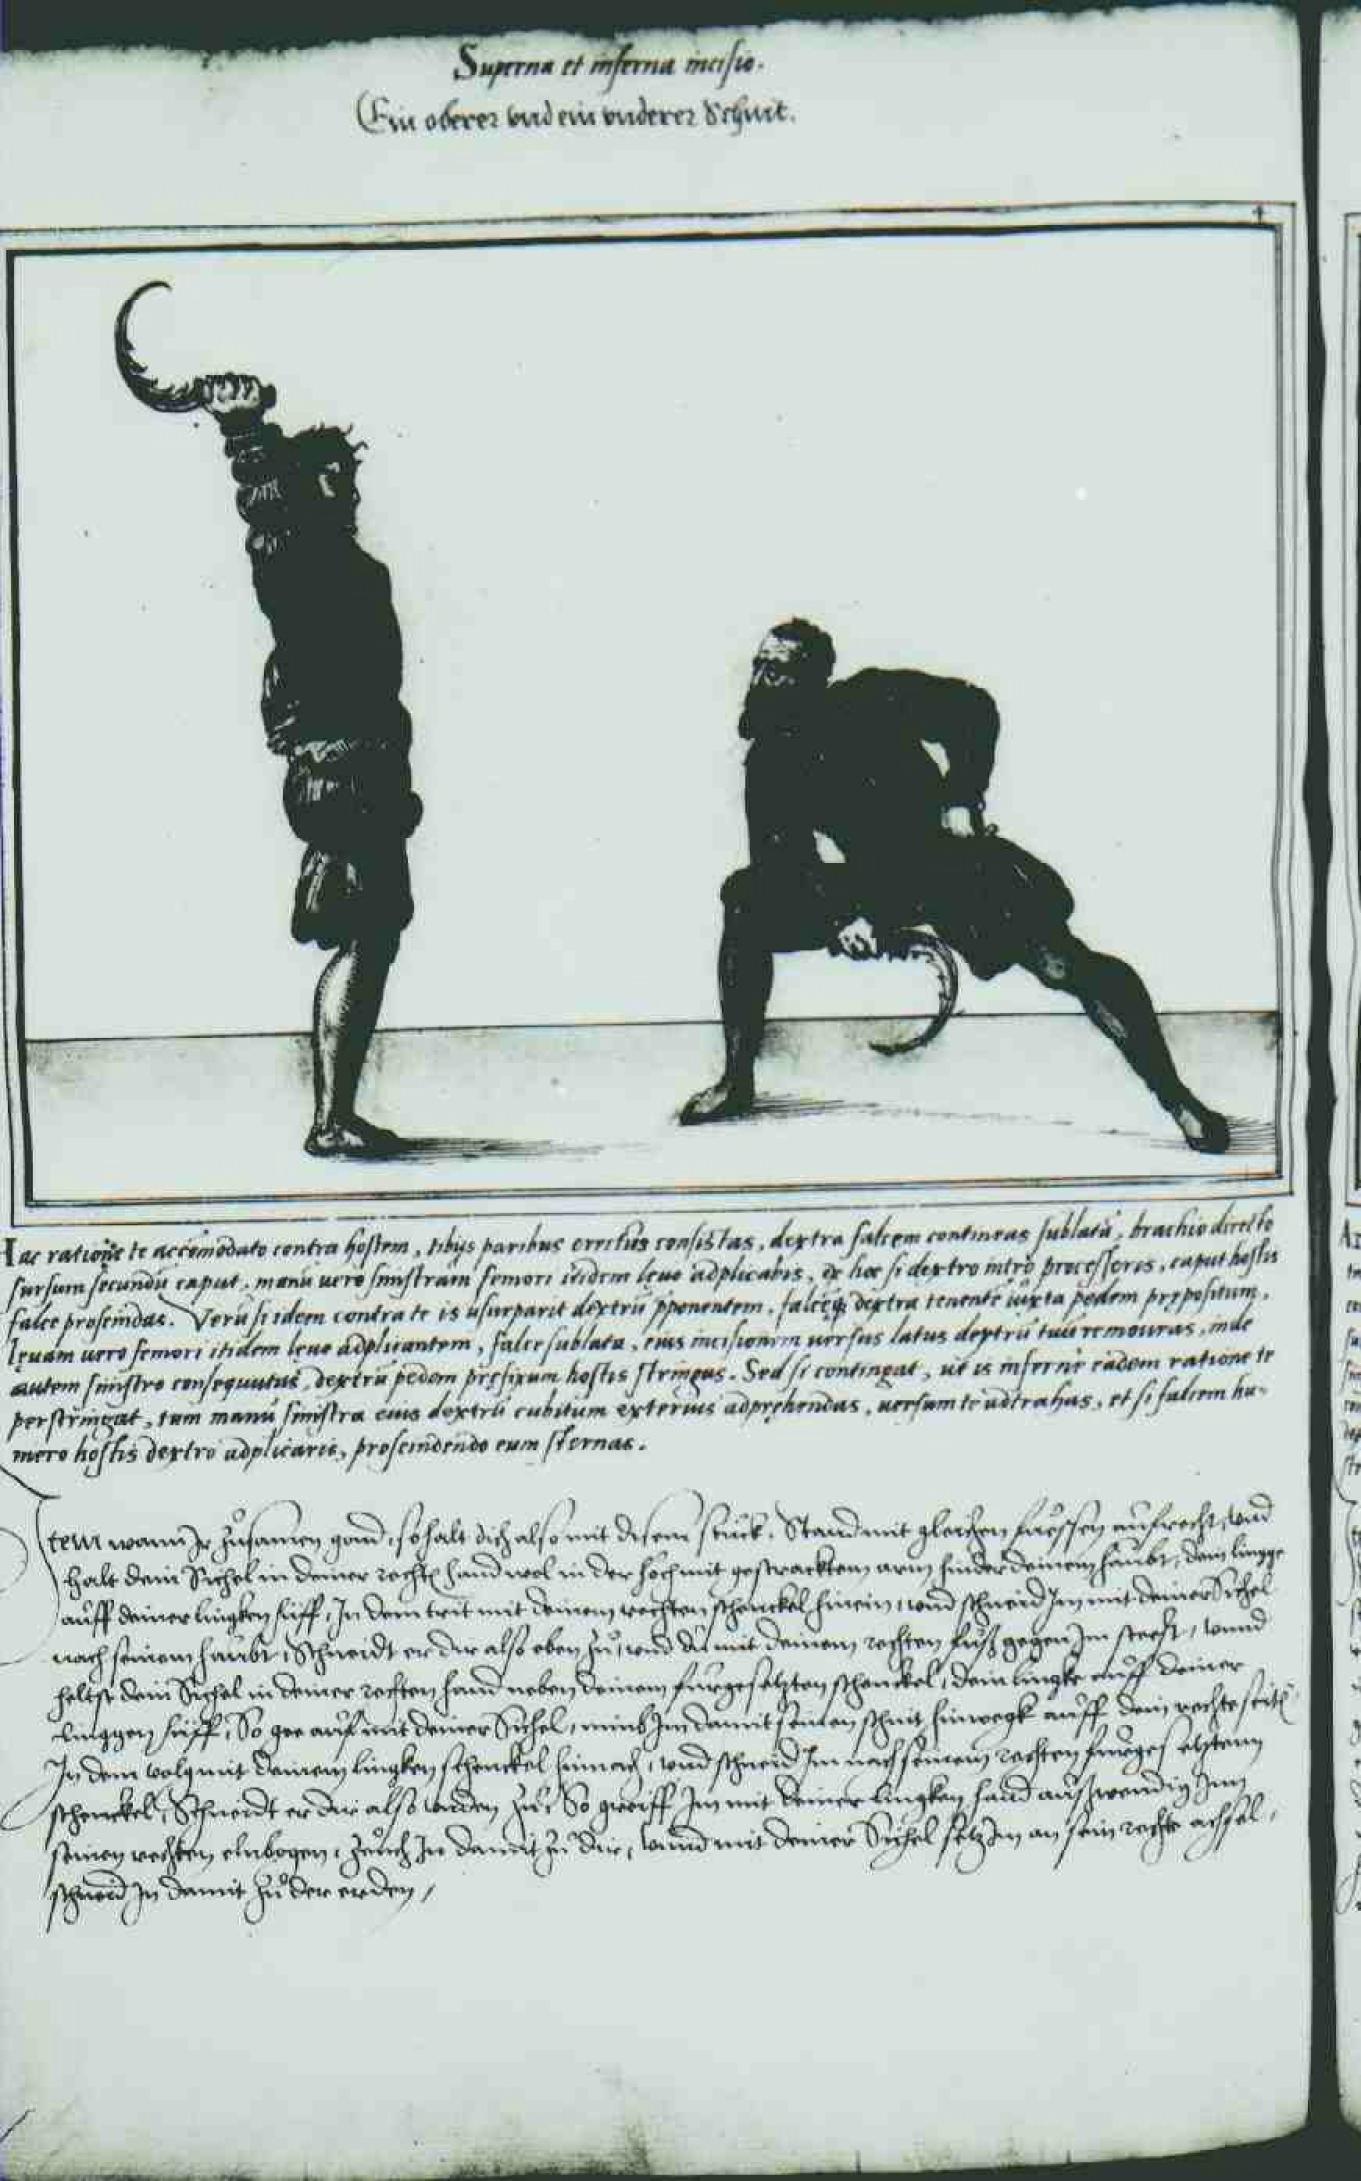 Superna et inferna incisio.
Ein oberer vnd ein vnderer Schnit.
Hac rationę te accōmodato contra hostem, tibijs paribus erectus consistas, dextra falcem contineas sublatā, brachio directo
sursum secundū caput, manū vero sinistram femori itidem lęuo adplicabis, ex hoc si dextro intro processeris, caput hostis
falce proscindas. Verū si idem contra te is usurparit dextrū pponentem, falcēq; dextra tenentē iuxta pedem prępositum,
lęuam uero femori itidem lęuo adplicantem, falce sublata, eius incisionem uersus latus dextrū tuū remoueas, inde
autem sinistro consequutus, dextrū pedem pręfixum hostis stringas. Sed si contingat, ut is infernè eadem ratione te
perstringat, tum manū sinistra eius dextrū cubitum exterius adpręhendas, uersum te adtrahas, et si falcem hu-
mero hostis dextro adplicaris, proscindendo eum sternas.
Item wann Ir zůsamen gond, so halt dich also mit disem stuck. Stand mit gleichen fuessen aufrecht, vnd
halt dein Sichel in deiner rechtē hand wol in der hoch mit gestracktem arm hinder deinem haubt, dein lingge
auff deiner lingken hüff, In dem trit mit deinem rechten schenckel hinein, vnd schneid Im mit deiner Sichel
nach seinem haubt, Schneidt er dir also oben zů, vnd du mit deinem rechten fůß gegen Im steest, vnnd
heltst dein Sichel in deiner rechten hand neben deinem fürgesetzten schenckel, dein lingke auff deiner
linggen hüff, So gee auf mit deiner Sichel, nimb Im damit seinen schnit hinwegk auff dein rechte seitē
In dem volg mit deinem lingken schenckel hinnach, vnd schneid Im nach seinem rechten fürgesetztenn
schenckel, Schneidt er dir also vnden zů, So greiff Im mit deiner lingken hand außwendig Inn
seinen rechten elnbogen, zeuch In damit zů dir, vnnd mit deiner Sichel setz Im an sein rechte achsel,
schneid In damit zů der erden,